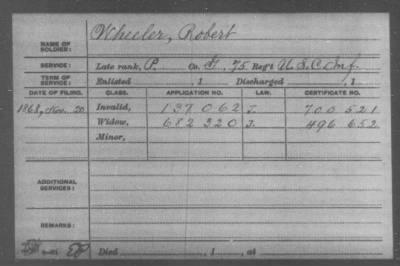 NAME OF SOLDIER: Wheeler, Robert
SERVICE: Late rank, P. Co. G, 75 Reg't U.S.C. Inf.
TERM OF SERVICE: Enlisted , 1 Discharged , 1
DATE OF FILING. CLASS. APPLICATION NO. LAW. CERTIFICATE NO.
1868, Nov. 20 Invalid, 137 062 J. 700 521
Widow, 682 320 J. 496 652
Minor,
ADDITIONAL SERVICES:
REMARKS:
Died , 1 , at